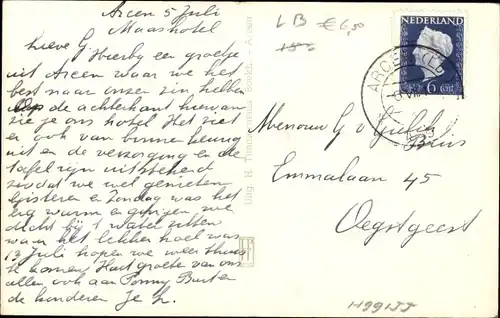 Arcen 5 Juli
Maashotel
Lieve G Hierbij een groetje
uit Arcen waar we het
best naar onze zin hebben
Op de achterkant hiervan
zie je ons hotel Het ziet
er ook van binnen keurig
uit en de verzorging en de
tafel zijn uitstekend
zoodat we wel genieten
Gisteren en Zondag was het
erg warm en gingen we
dicht bij 't water zitten
waar het lekker koel was
13 Juli hopen we weer thuis
te komen Hart groeten van ons
allen ook aan
de kinderen Je
LB € 6,50
NEDERLAND
6 CENT
ARCEN
Mevrouw G v
Emmalaan 45
Oegstgeest